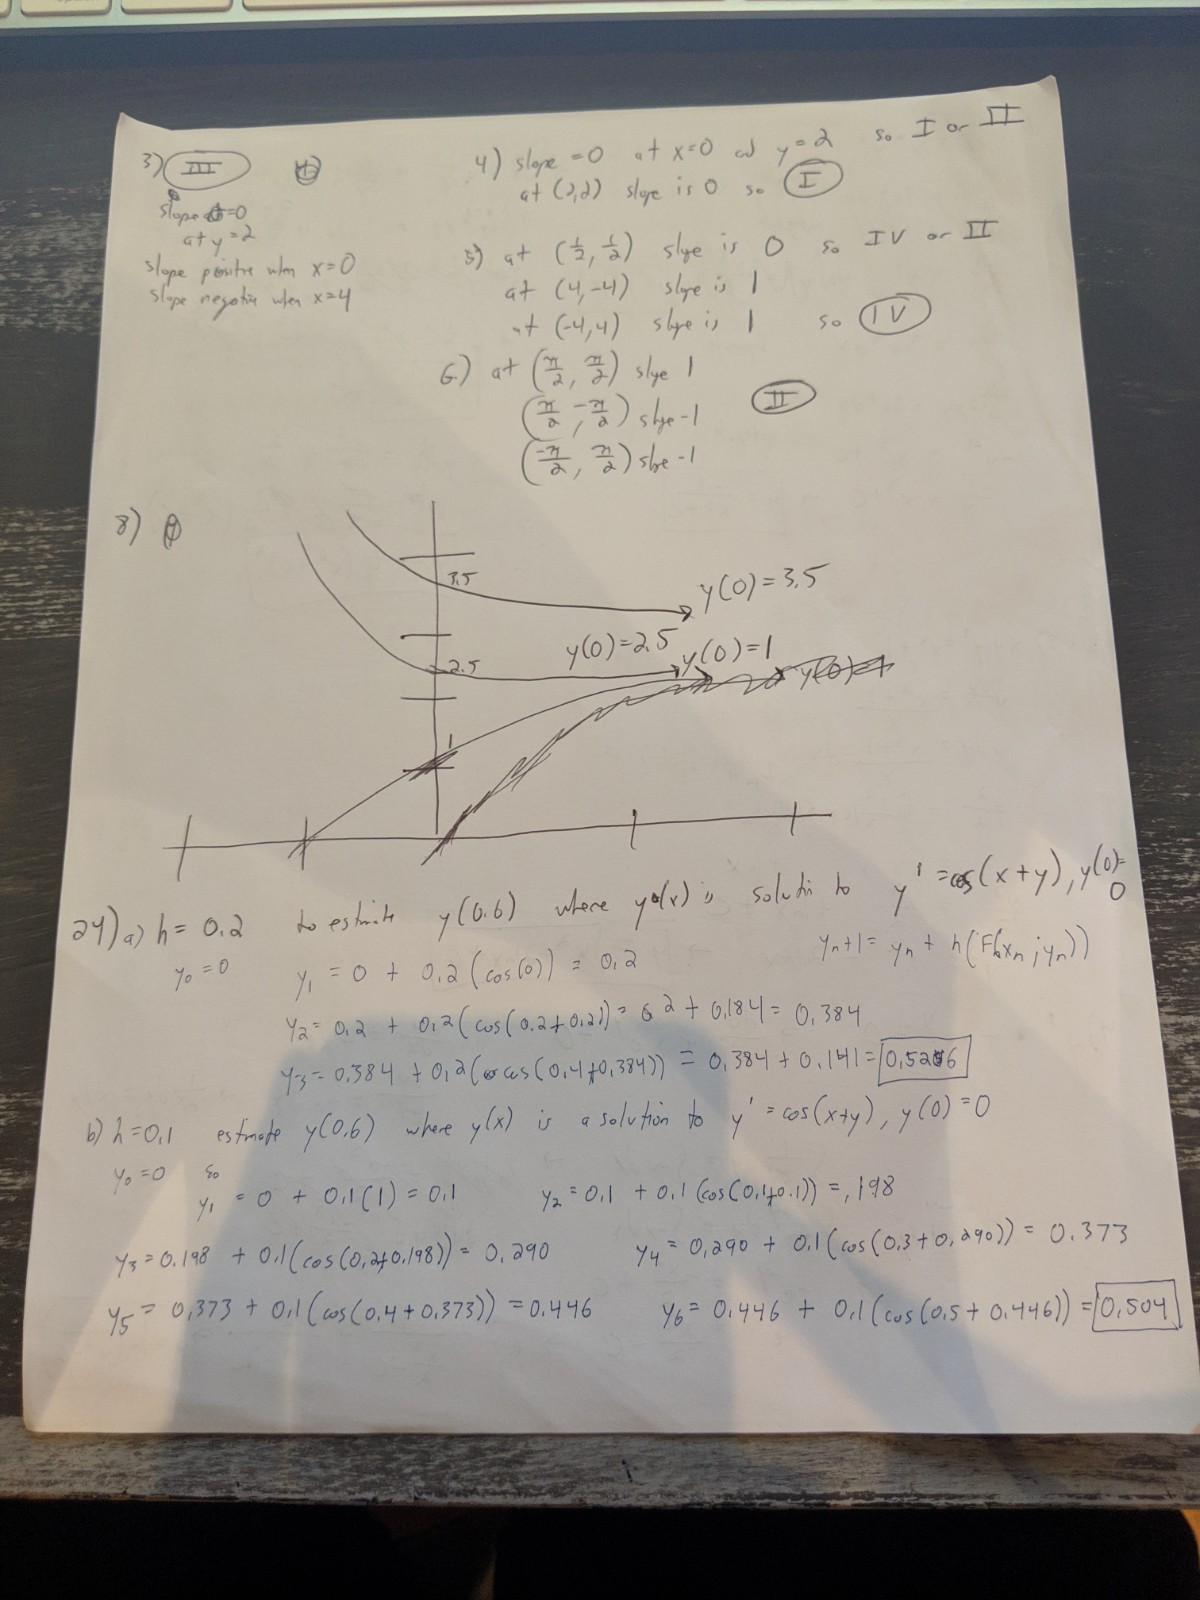 3) III
slope =0
at y=2
slope positive when x=0
slope negative when x=4
4) slope =0 at x=0 and y=2 so I or II
at (2,2) slope is 0 so I
5) at (1/2, 1/2) slope is 0 so IV or II
at (4,-4) slope is 1
at (-4,4) slope is 1 so IV
6.) at (π/2, π/2) slope 1
(π/2, -π/2) slope -1 II
(-π/2, π/2) slope -1
8)
3.5
y(0)=3.5
2.5
y(0)=2.5
y(0)=1
y(0)=1
1
24) a) h = 0.2 to estimate y(0.6) where y(x) is solution to y' = cos(x+y), y(0)=0
y0 = 0 y1 = 0 + 0.2(cos(0)) = 0.2 yn+1 = yn + h(F(xn, yn))
y2 = 0.2 + 0.2(cos(0.2+0.2)) = 0.2 + 0.184 = 0.384
y3 = 0.384 + 0.2(cos(0.4+0.384)) = 0.384 + 0.141 = 0.526
b) h = 0.1 estimate y(0.6) where y(x) is a solution to y' = cos(x+y), y(0) = 0
y0 = 0 so
y1 = 0 + 0.1(1) = 0.1 y2 = 0.1 + 0.1(cos(0.1+0.1)) = .198
y3 = 0.198 + 0.1(cos(0.2+0.198)) = 0.290 y4 = 0.290 + 0.1(cos(0.3+0.290)) = 0.373
y5 = 0.373 + 0.1(cos(0.4+0.373)) = 0.446 y6 = 0.446 + 0.1(cos(0.5+0.446)) = 0.504